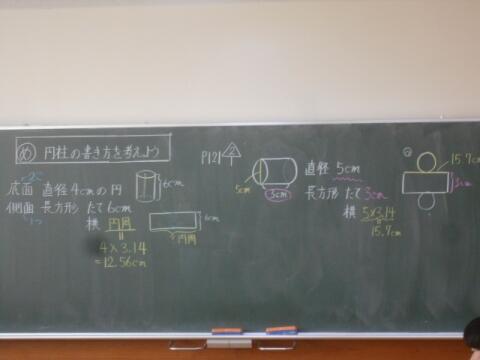 め 円柱の書き方を考えよう
2こ
底面 直径4cmの円
側面 長方形 たて6cm
1つ
横 円周
4×3.14
=12.56cm
6cm
6cm
円周
P121 2
5cm
3cm
直径 5cm
長方形 たて3cm
横 5×3.14
15.7cm
15.7cm
3cm